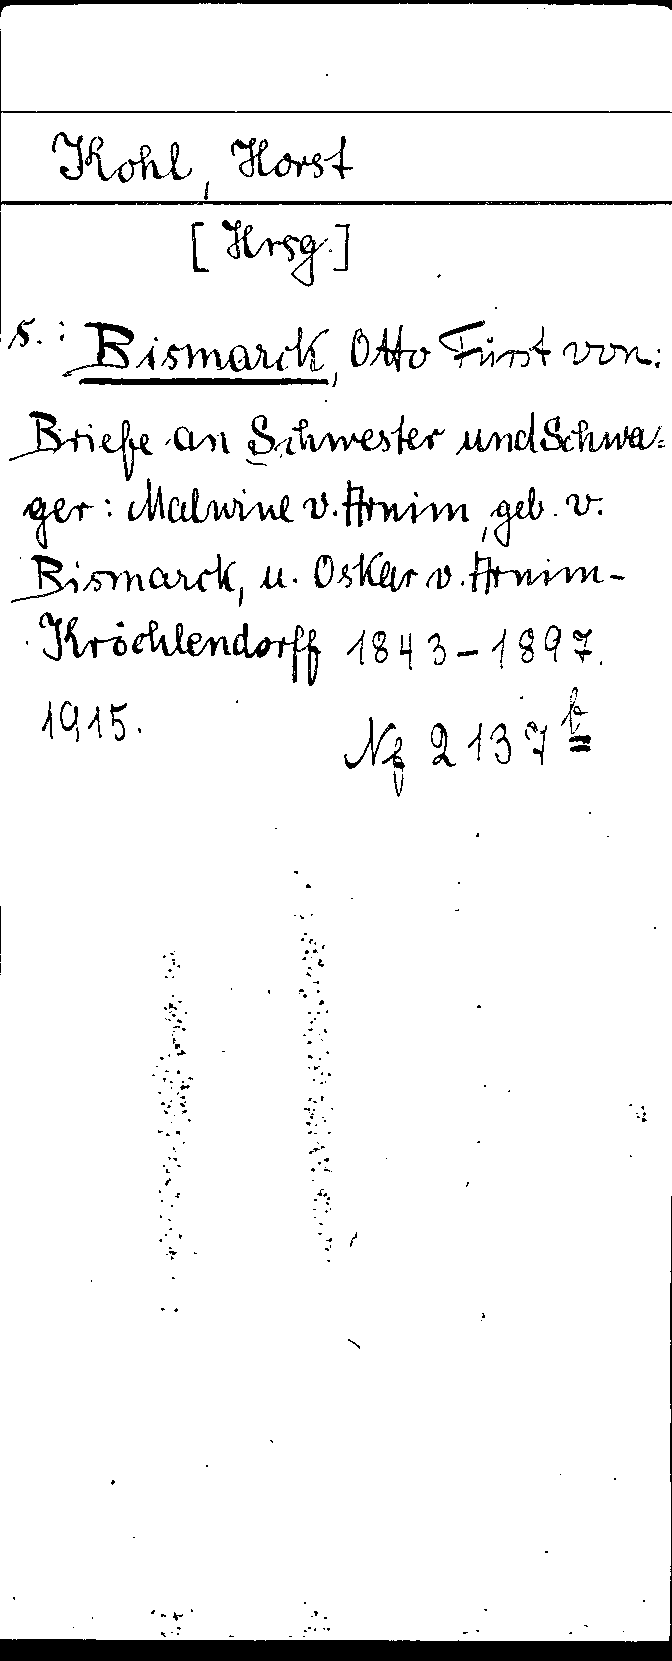 Kohl, Horst
[Hrsg.]
s.: Bismarck, Otto Fürst von:
Briefe an Schwester und Schwa=
ger: Malwine v. Arnim, geb. v.
Bismarck, u. Oskar v. Arnim-
Kröchlendorff 1843-1897.
1915.
2137